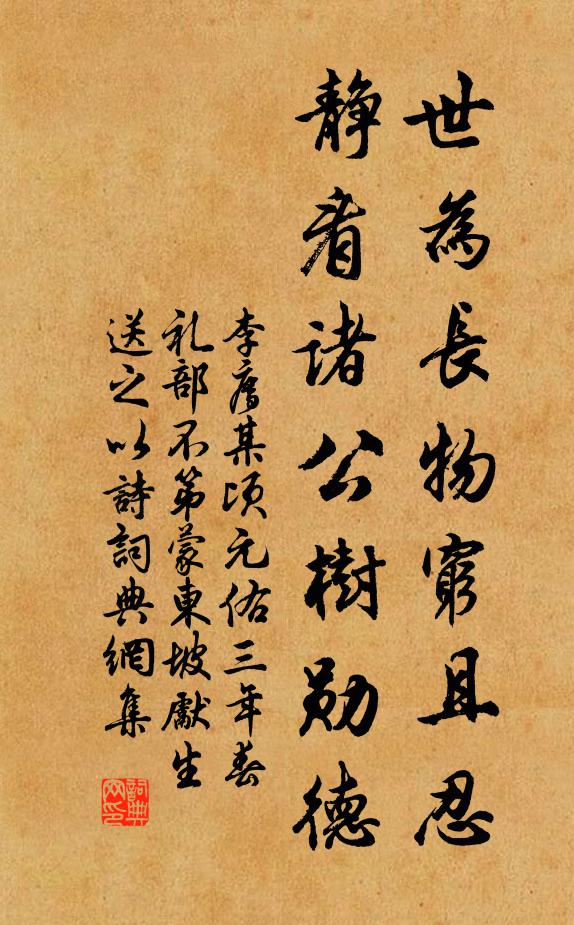 世為長物窮且忍
静看諸公樹勋德
李廌某頃元佑三年春
礼部不第蒙東坡獻生
送之以詩詞典網集
詞典網印